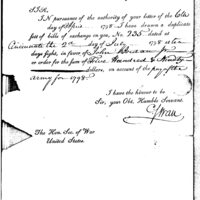 SIR,
IN pursuance of the authority of your letter of the 6th
day of April 1798 I have drawn a duplicate
sett of bills of exchange on you, No. 735 dated at
Cincinnati the 2nd day of July 1798 at ten
days sight, in favor of John
or order for the sum of Three Hundred & Ninety
dollars, on account of the pay of the
army for 1798.
I have the honour to be
Sir, your Obt. Humble Servant.
C Swan
The Hon. Sec. of War
United States.